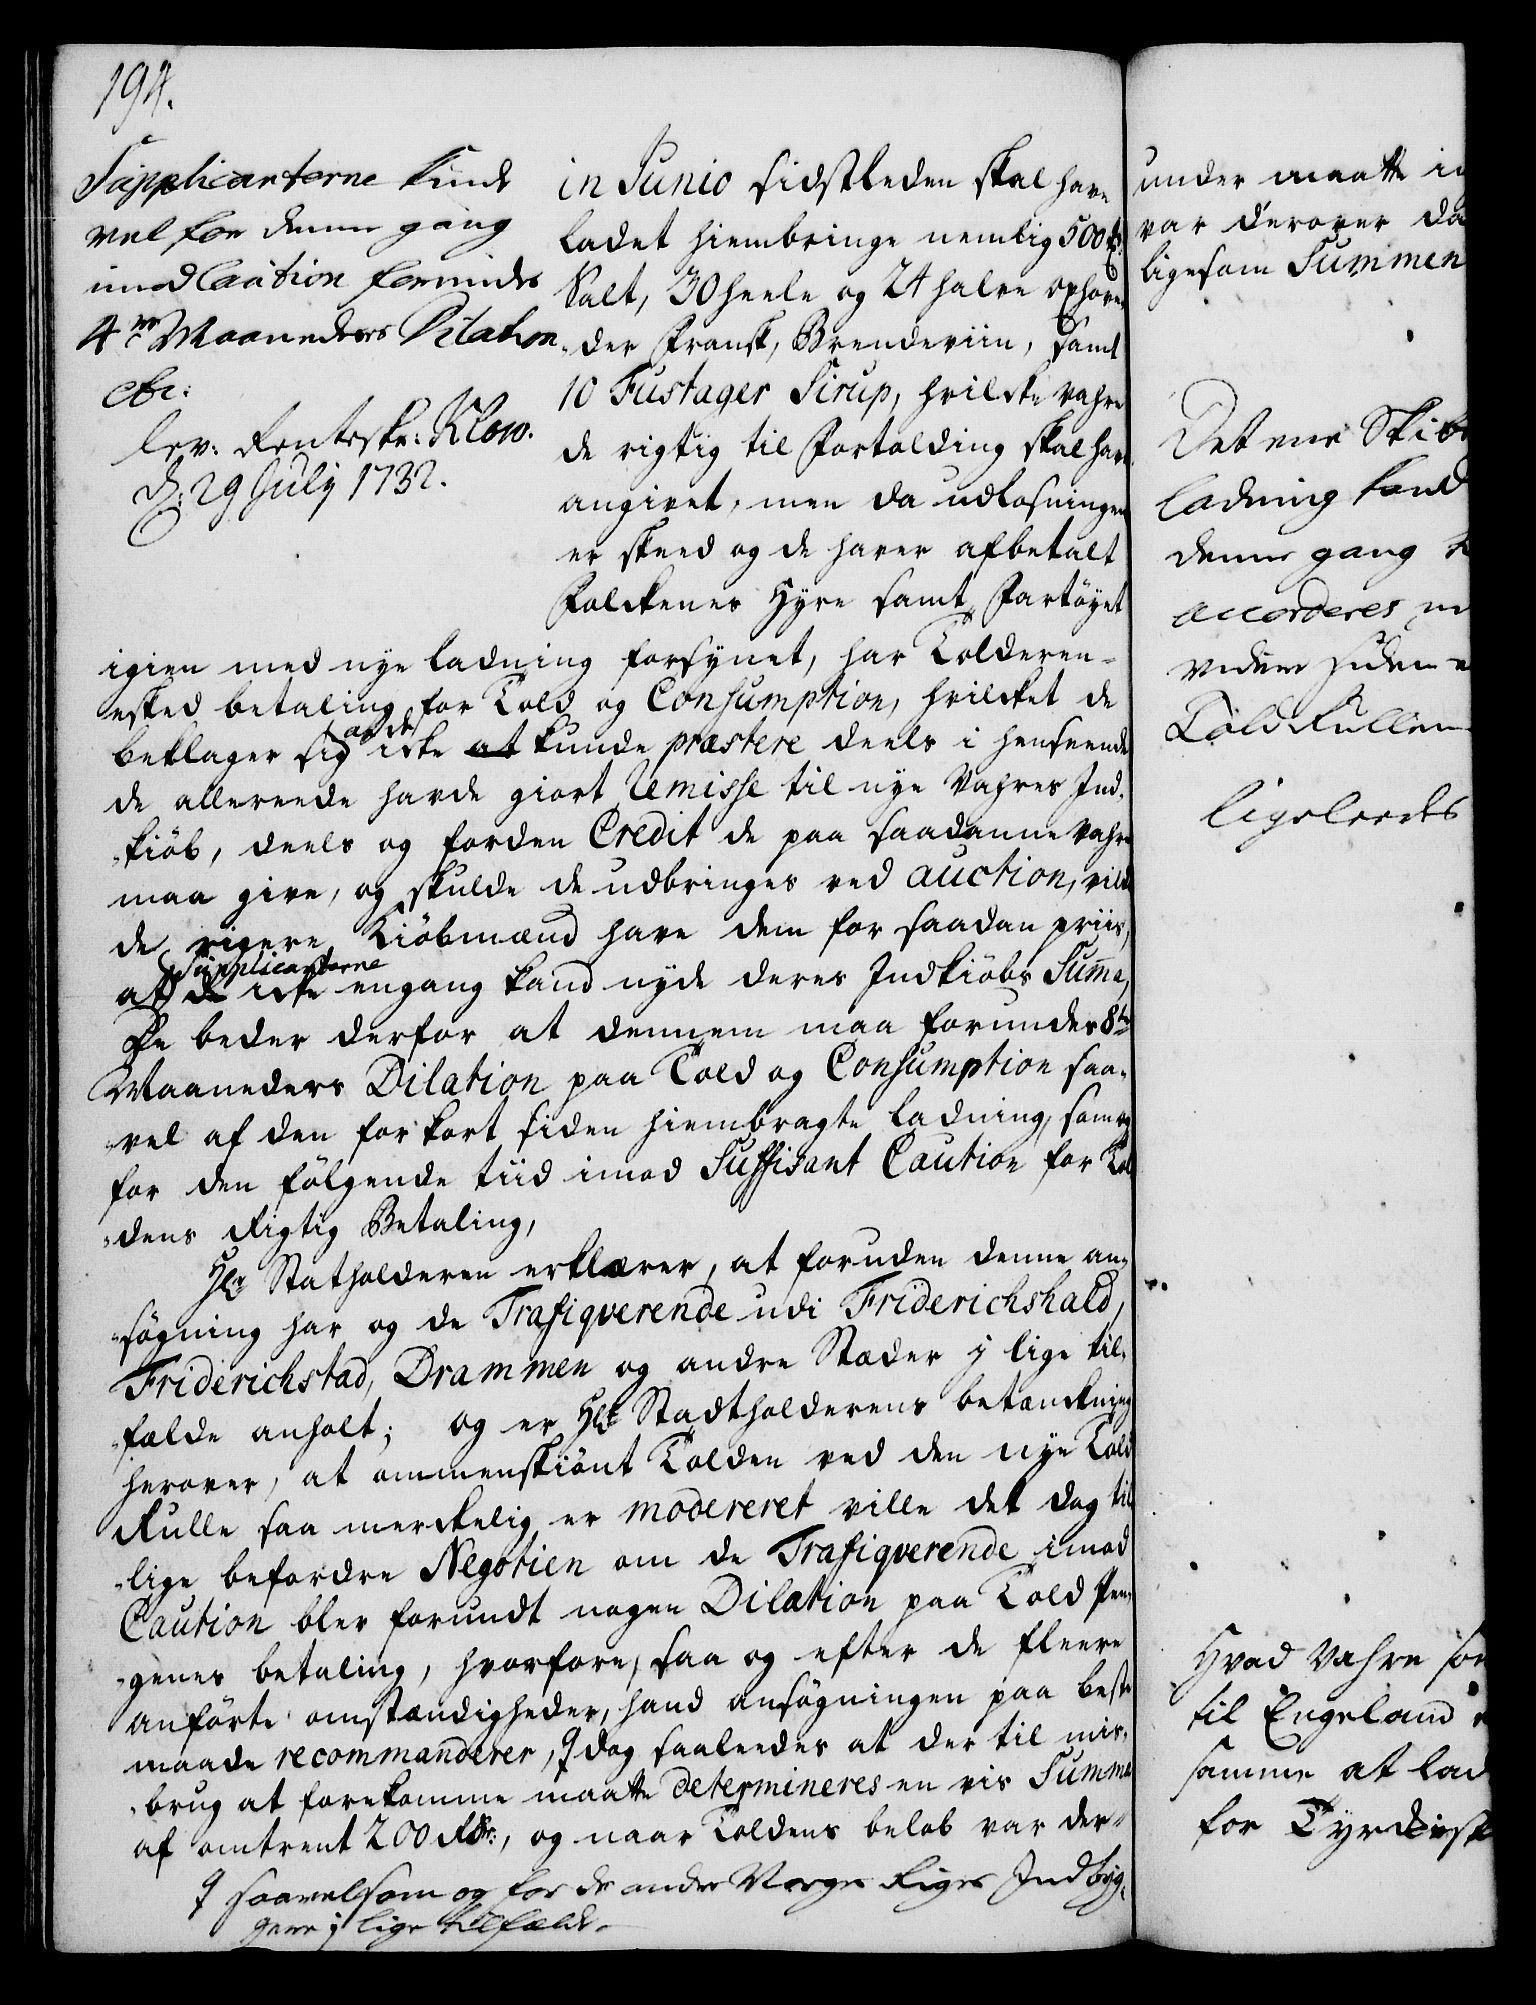 194.
Supplicanterne kunde
vel for denne gang
imod Caution forundes
4re Maaneders Dilation
etc:
lev: Renteskr: Klow.
d: 29 July 1732.
in Junio sidstleden skal have
ladet hiembringe nemlig 500 
Salt, 30 heele og 24 halve Oxhove-
der Fransk, Brendeviin, samt
10 Fustager Sirup, hvilcke vahre
de rigtig til Fortolding skal have
angivet, men da udlosningen
er skeed og de haver afbetalt
Folckenes Hyre samt Fartöyet
igien med nye ladning forsynet, har Tolderen
esked betaling for Told og Consumption, hvilcket de
beklager sig at de icke at kunde præstere deels i henseende
de allereede havde giort Remisse til nye Vahres Ind-
kiöb, deels og forden Credit de paa saadanne Vahre
maa give, og skulde de udbringes ved auction, vilde
de rigere Kiöbmænd have dem for saadan priis,
at de Supplicanterne icke engang kand nyde deres Indkiöbs Suma,
De beder derfor at dennem maa forundes 8te
Maaneders Dilation paa Told og Consumption saa-
vel af den for kort siden hiembragte ladning, som og
for den fölgende tiid imod Suffisant Caution for Tol
dens Rigtig Betaling,
Hr Statholderen erklærer, at foruden denne an-
søgning har og de Trafiqverende udi Friderichshald,
Friderichstad, Drammen og andre Stæder i lige til-
fælde anholt; og er Hr Stadtholderens betænckning
herover, at ommenskiönt Tolden ved den nye Told
Rulle saa merckelig er modereret ville det dog til
lige befordre Negotien om de Trafiqverende imod
Caution blev forundt nogen Dilation paa Told Pen-
genes betaling, hvorfore, saa og efter de fleere
anförte omstændigheder, hand ansøgningen paa beste
maade recommanderer, dog saaleedes at der til mis-
brug at forekomme maatte determineres en vis Summa
af omtrent 200 Rdr:, og naar Toldens belöb var der-
saavelsom og for de andre Norges Riges Indbyg-
gere i lige tilfælde.
under maatte in
var derover da
ligesom Summen
Det ene Skibs
ladning kand
denne gang
accorderes
videre siden
Told Rullen
ligeleedes
Hvad Vahre som
til Engeland
samme at lad
for